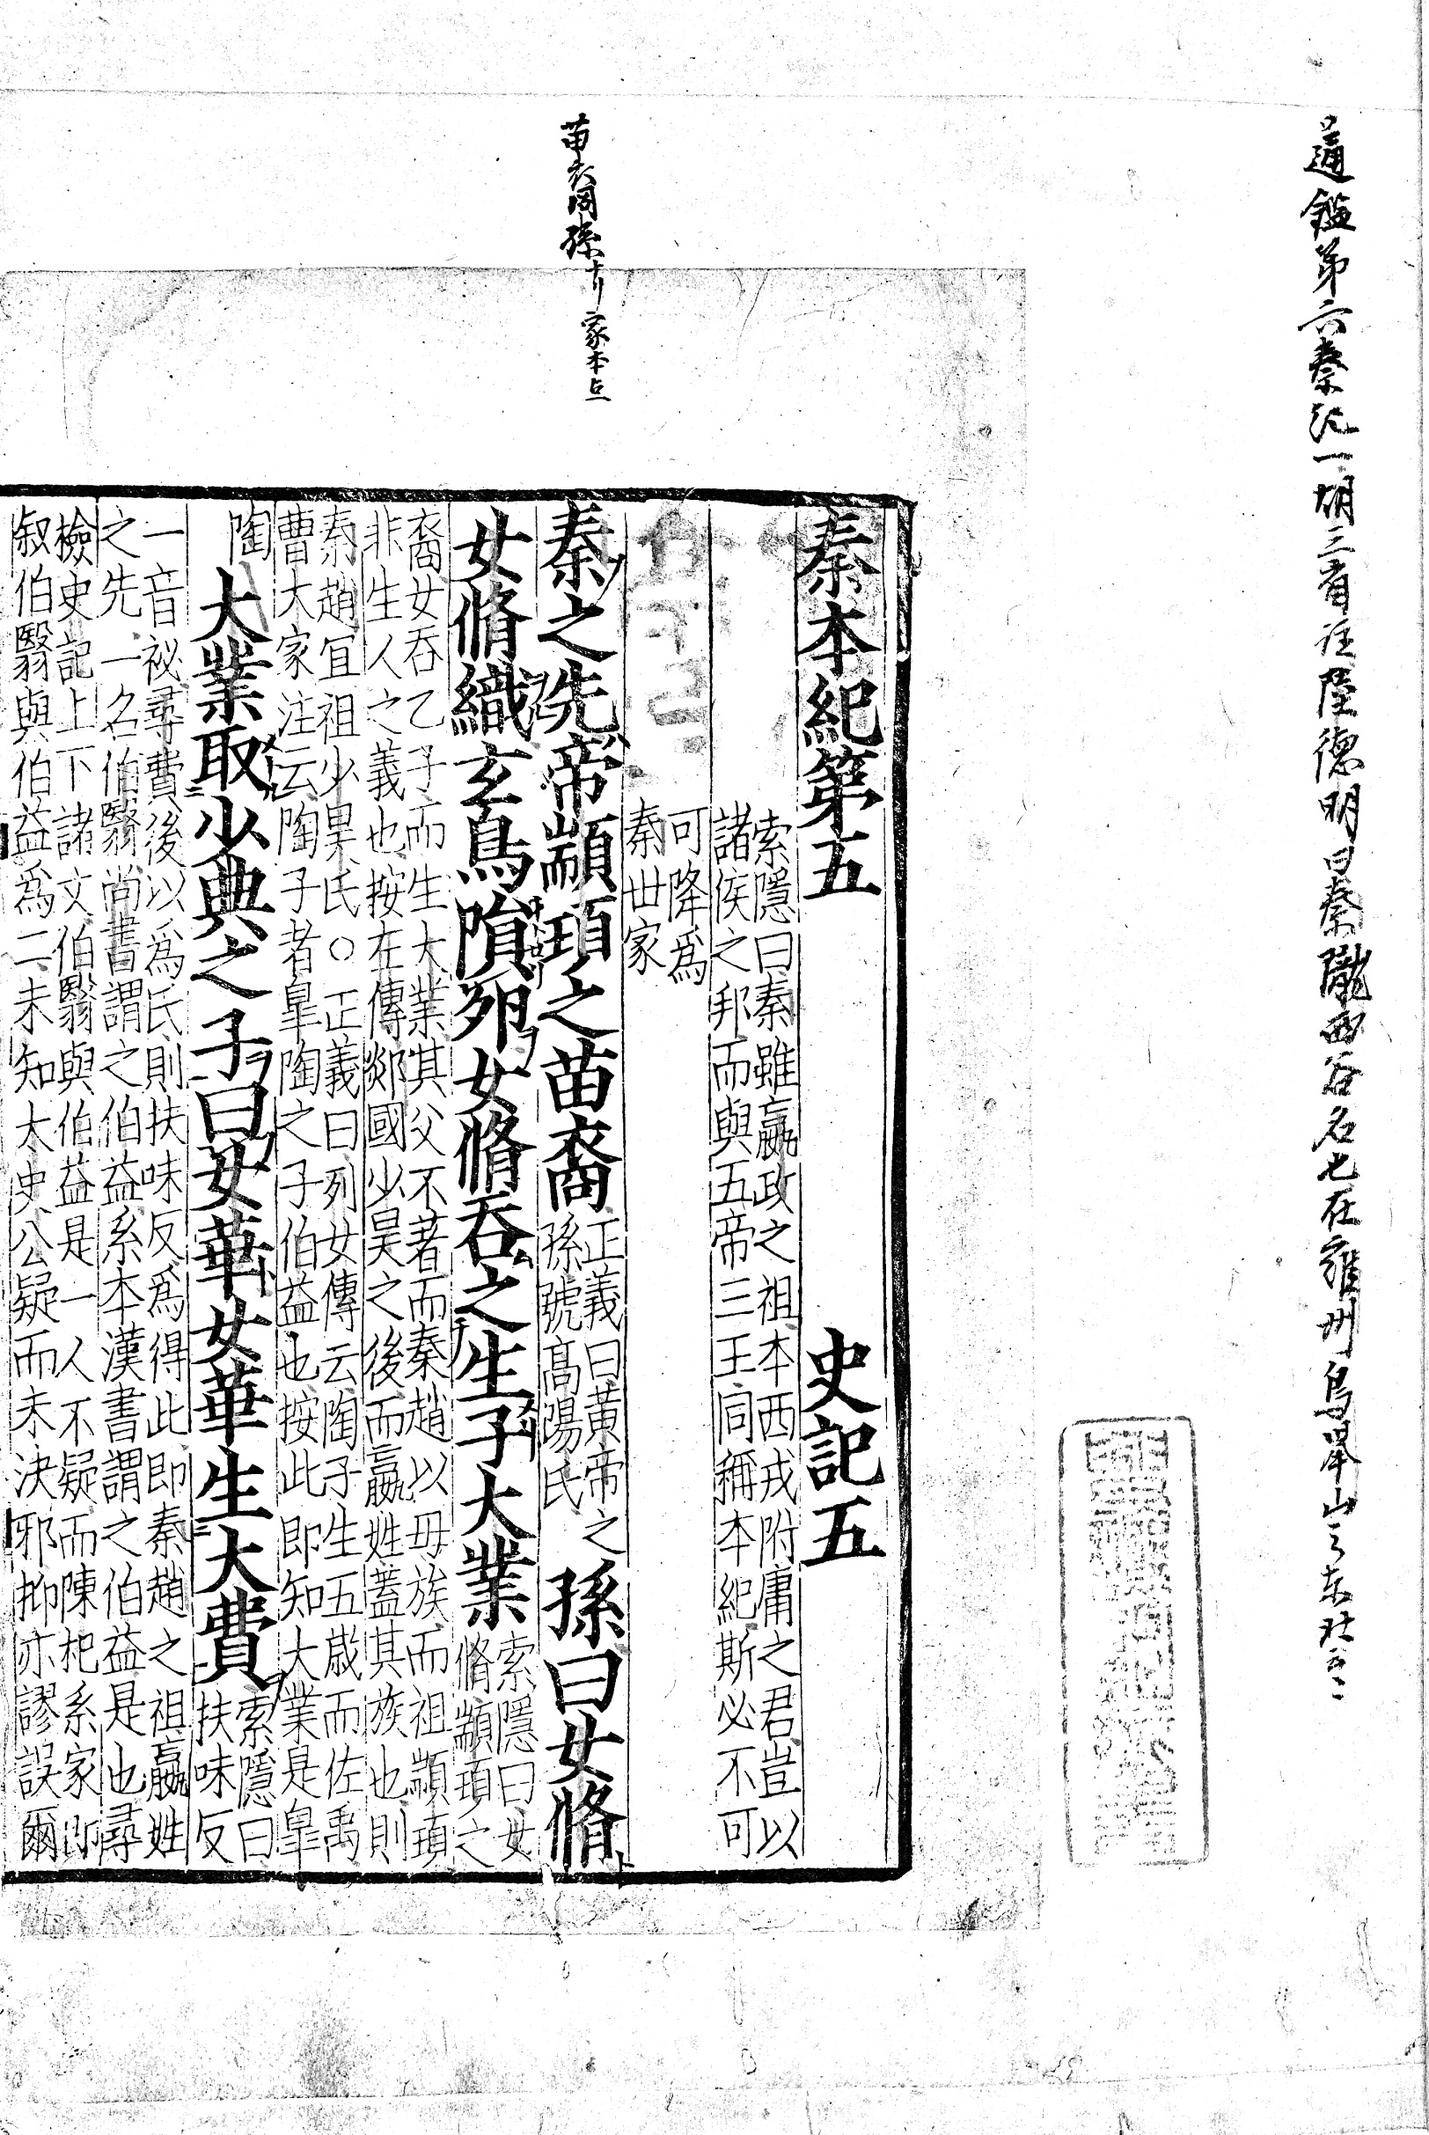 通鑑第六秦紀一胡三省註陸德明曰秦隴西谷名也在雍州鳥鼠山之東北
秦本紀第五 史記五
索隱曰秦雖嬴政之祖本西戎附庸之君豈以
諸侯之邦而與五帝三王同稱本紀斯必不可
可降爲
秦世家
秦之先帝顓頊之苗裔
正義曰黃帝之
孫號高陽氏
孫曰女脩
女脩織玄鳥隕卵女脩吞之生子大業
索隱曰女
脩顓頊之
裔女吞乙子而生大業其父不著而秦趙以母族而祖顓頊
非生人之義也按在傳郯國少昊之後而嬴姓蓋其族也則
秦趙宜祖少昊氏○正義曰列女傳云陶子生五歲而佐禹
曹大家注云陶子者皐陶之子伯益也按此即知大業是皐
陶
大業取少典之子曰女華女華生大費
索隱曰
扶味反
一音祕尋費後以爲氏則扶味反爲得此即秦趙之祖嬴姓
之先一名伯翳尚書謂之伯益系本漢書謂之伯益是也尋
檢史記上下諸文伯翳與伯益是一人不疑而陳杞系家即
叙伯翳與伯益爲二未知大史公疑而未決邪抑亦謬誤爾
家本点